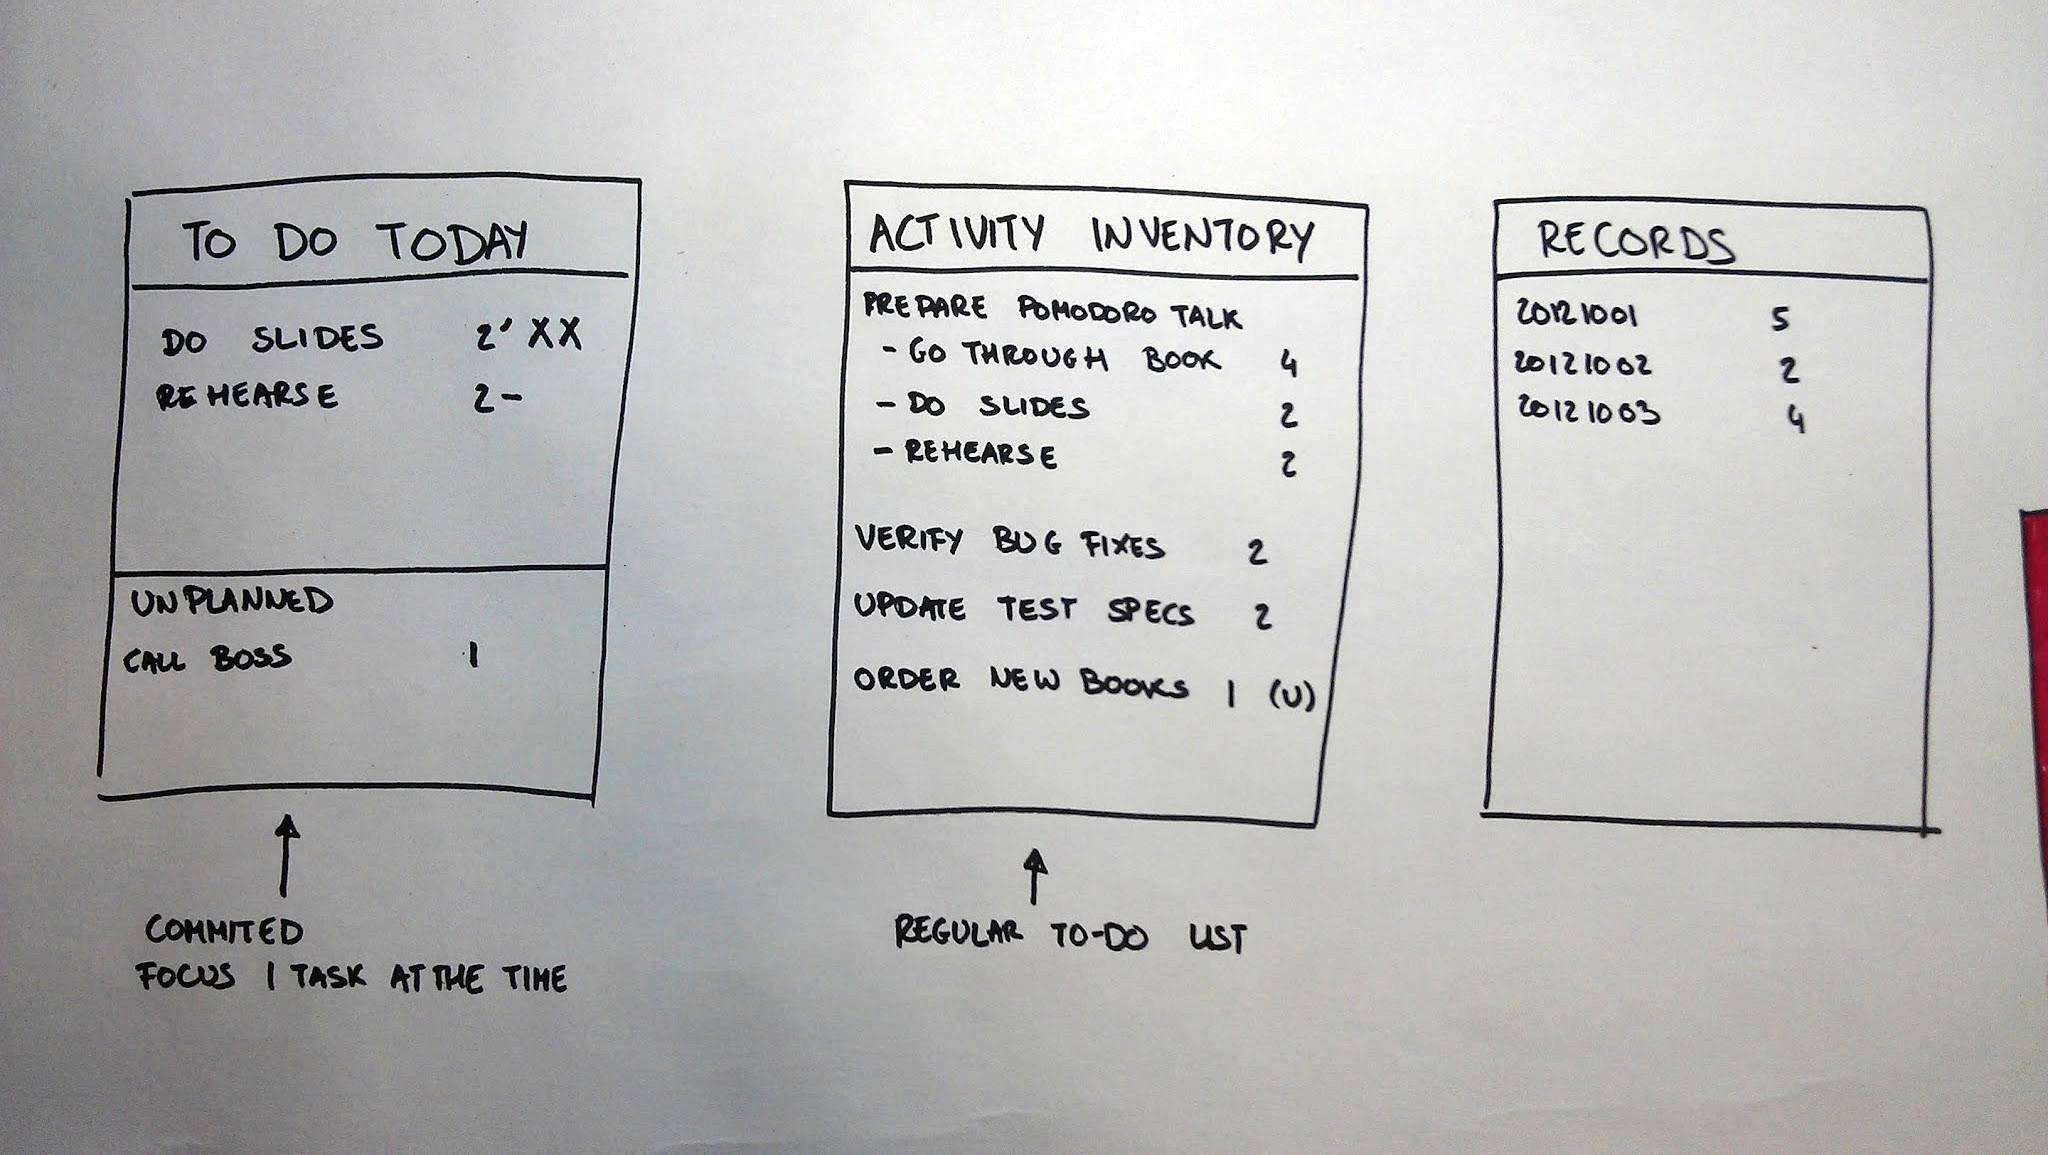 TO DO TODAY
DO SLIDES 2' XX
REHEARSE 2-
UNPLANNED
CALL BOSS 1
COMMITED
FOCUS 1 TASK AT THE TIME
ACTIVITY INVENTORY
PREPARE POMODORO TALK
- GO THROUGH BOOK 4
- DO SLIDES 2
- REHEARSE 2
VERIFY BUG FIXES 2
UPDATE TEST SPECS 2
ORDER NEW BOOKS 1 (U)
REGULAR TO-DO LIST
RECORDS
20121001 5
20121002 2
20121003 4